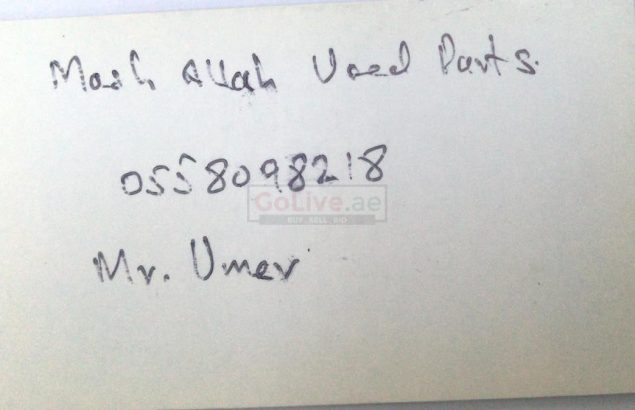 Mash Allah Used Parts.
0558098218
GoLive.ae
BUY SELL BID
Mr. Umer